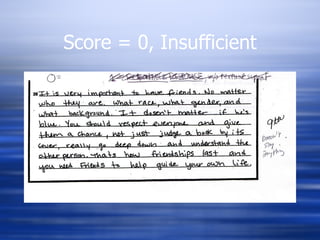 Score = 0, Insufficient
0=
It is very important to have friends. No matter
who they are. What race, what gender, and
what background. It doesn't matter if he's
blue. You should respect everyone and give
them a chance, not just judge a book by its
cover, really go deep down and understand the
other person. thats how friendships last and
you need Friends to help guide your own life.
Doesn't
say
anything